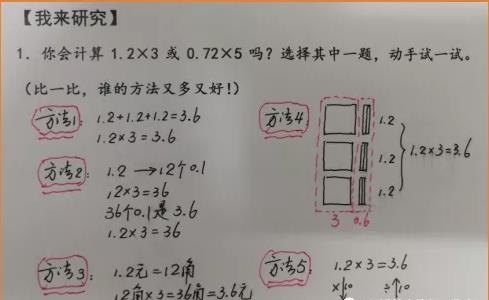 【我来研究】
1. 你会计算 1.2×3 或 0.72×5 吗？选择其中一题，动手试一试。
（比一比，谁的方法又多又好！）
方法1： 1.2+1.2+1.2=3.6
1.2×3=3.6
方法2： 1.2 → 12个0.1
12×3=36
36个0.1是3.6
1.2×3=36
方法3： 1.2元=12角
12角×3=36角=3.6元
方法4
1.2
1.2
1.2
1.2×3=3.6
3 0.6
方法5： 1.2×3=3.6
×10 ÷10